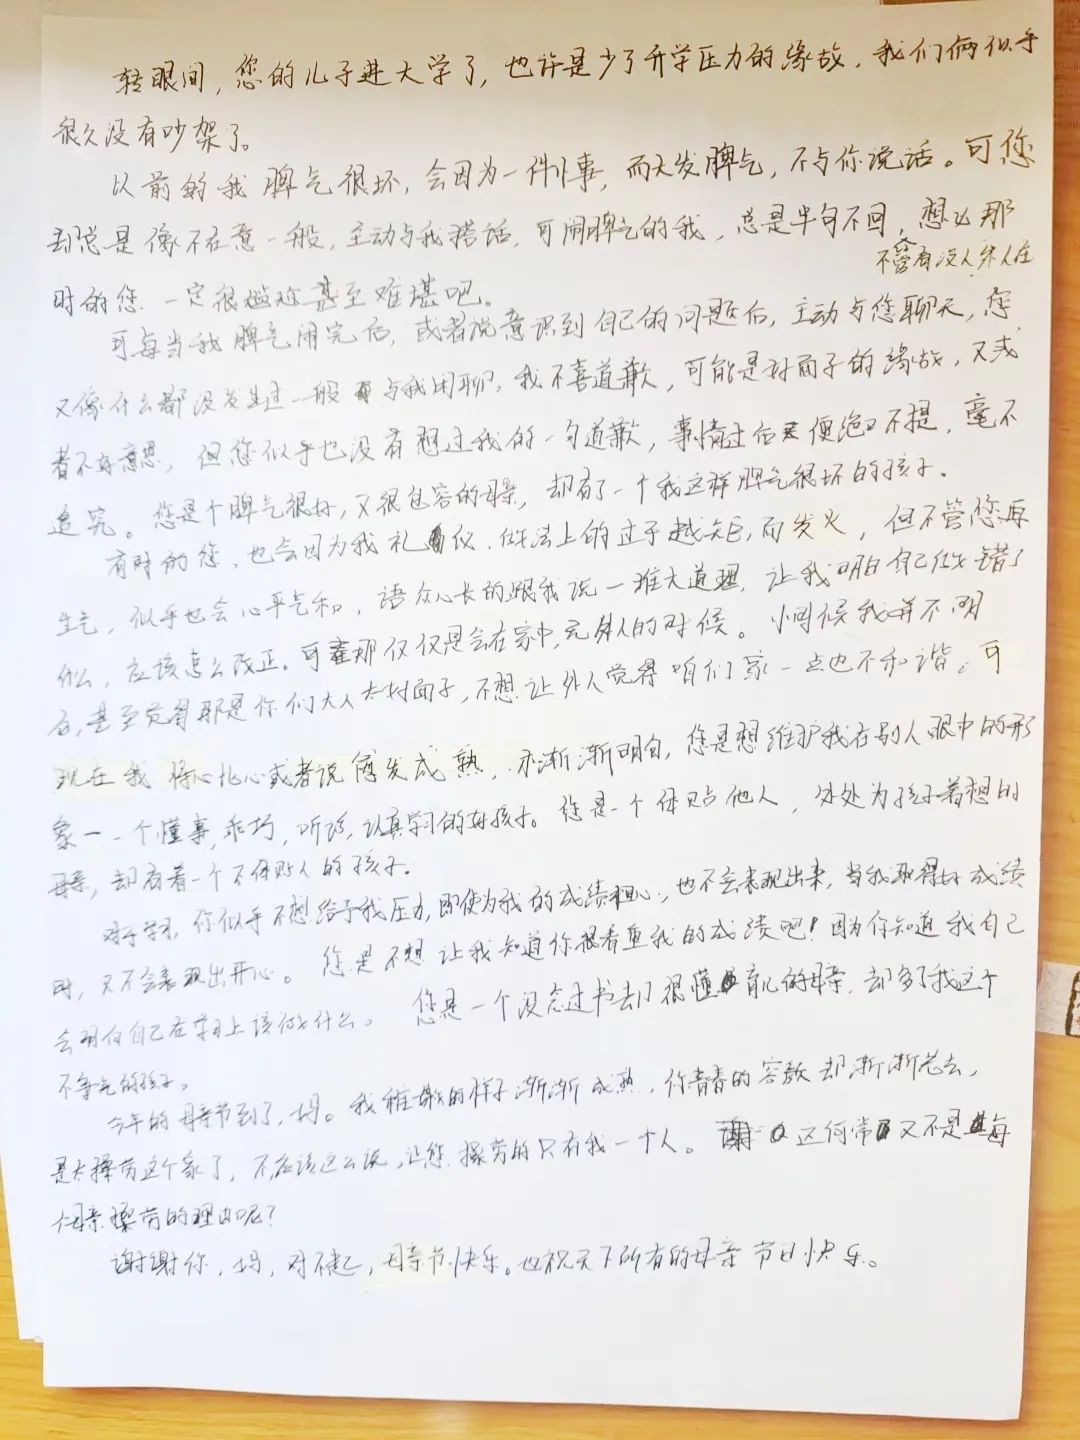 转眼间，您的儿子进大学了，也许是少了升学压力的缘故，我们俩似乎
很久没有吵架了。
以前的我脾气很坏，会因为一件小事，而大发脾气，不与你说话。可您
却总是像不在意一般，主动与我搭话，可闹脾气的我，总是半句不回，想必那
不管有没人外人在
时的您，一定很尴尬甚至难堪吧。
可每当我脾气闹完后，或者说意识到自己的问题后，主动与您聊天，您
又像什么都没发生过一般与我闲聊，我不喜道歉，可能是好面子的缘故，又或
者不好意思，但您似乎也没有想过我的一句道歉，事情过后便绝口不提，毫不
追究。您是个脾气很好，又很包容的母亲，却有了一个我这样脾气很坏的孩子。
有时的您，也会因为我礼仪、做法上的过于越矩，而发火，但不管您再
生气，似乎也会心平气和，语众心长的跟我说一堆大道理，让我明白自己做错了
什么，应该怎么改正。可那仅仅是会在家中，无外人的时候。小时候我并不明
白，甚至觉得那是你们大人太好面子，不想让外人觉得咱们家一点也不和谐。可
现在我将心比心或者说愈发成熟，亦渐渐明白，您是想维护我在别人眼中的形
象一一个懂事，乖巧，听话，认真学习的好孩子。您是一个体贴他人，处处为孩子着想的
母亲，却有着一个不体贴人的孩子。
对于学习，你似乎不想给予我压力，即使为我的成绩担心，也不会表现出来，当我取得好成绩
时，又不会表现出开心。您是不想让我知道你很看重我的成绩吧！因为你知道我自己
会明白自己在学习上该做什么。您是一个没念过书却很懂育儿的母亲，却多了我这个
不争气的孩子。
今年的母亲节到了，妈。我稚嫩的样子渐渐成熟，你青春的容貌却渐渐老去，
是太操劳这个家了，不，应该这么说，让您操劳的只有我一个人。这何常又不是每
个母亲操劳的理由呢？
谢谢你，妈，对不起，母亲节快乐。也祝天下所有的母亲节日快乐。